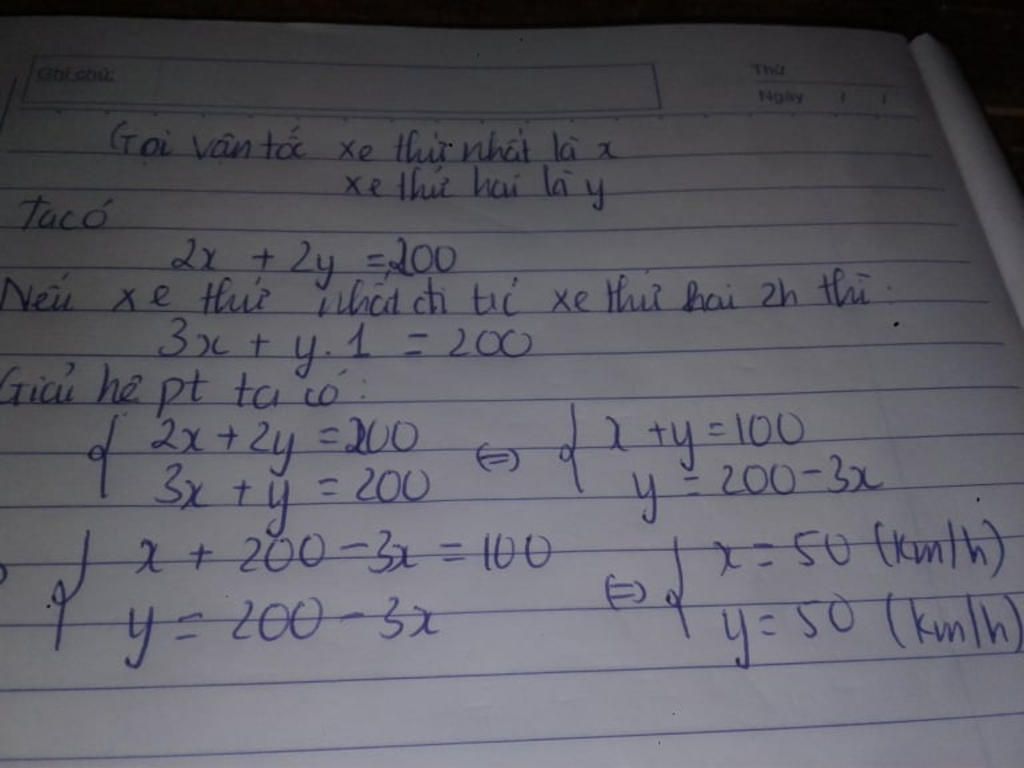 Ghi chú:
Thứ
Ngày / /
Gọi vận tốc xe thứ nhất là x
xe thứ hai là y
Ta có
2x + 2y = 200
Nếu xe thứ nhất đi xe thứ hai 2h thì:
3x + y.1 = 200
Giải hệ pt ta có:
{ 2x + 2y = 200 ⇔ { x + y = 100
3x + y = 200 y = 200 - 3x
{ x + 200 - 3x = 100 ⇔ { x = 50 (km/h)
y = 200 - 3x y = 50 (km/h)